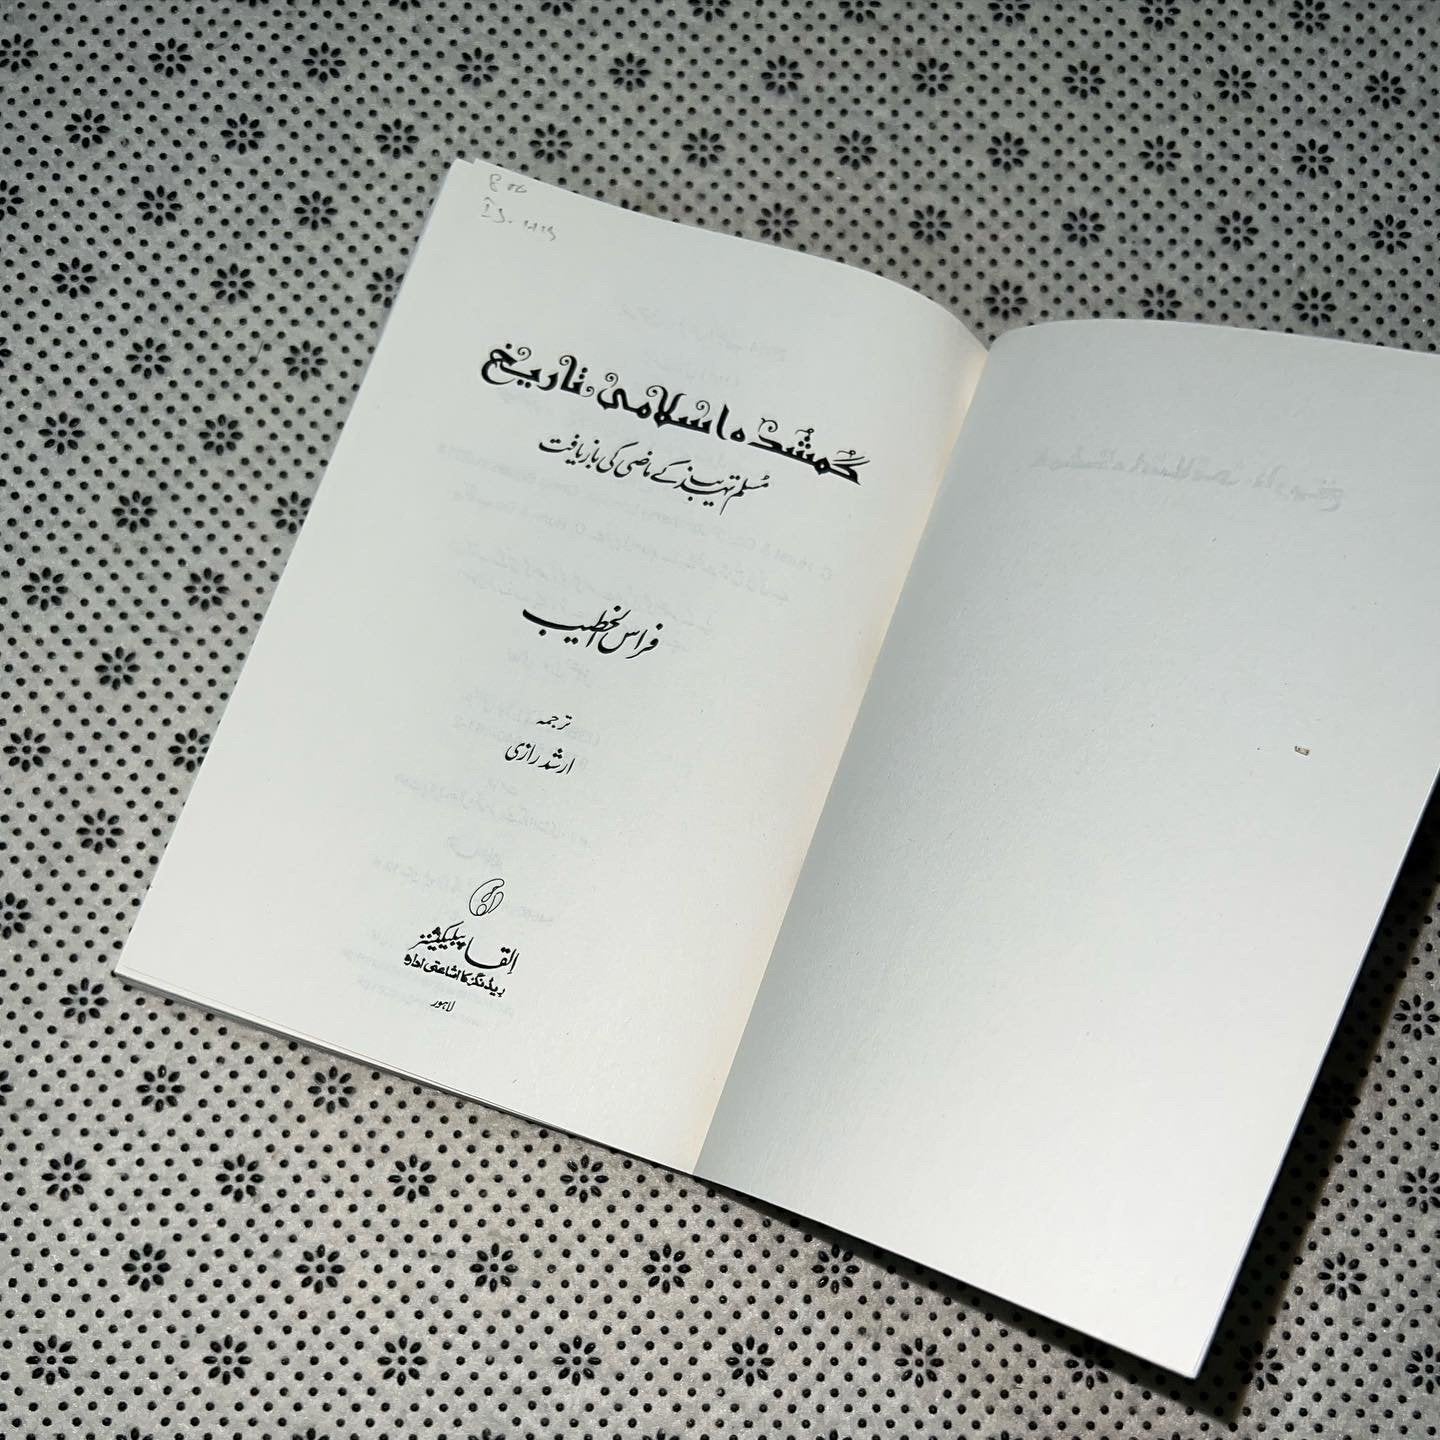 گمشدہ اسلامی تاریخ
مُسلم تہذیب کے ماضی کی بازیافت
فراس الخطیب
ترجمہ
ارشد رازی
اِلقا پبلیکیشنز
ریڈنگز کا اشاعتی ادارہ
لاہور